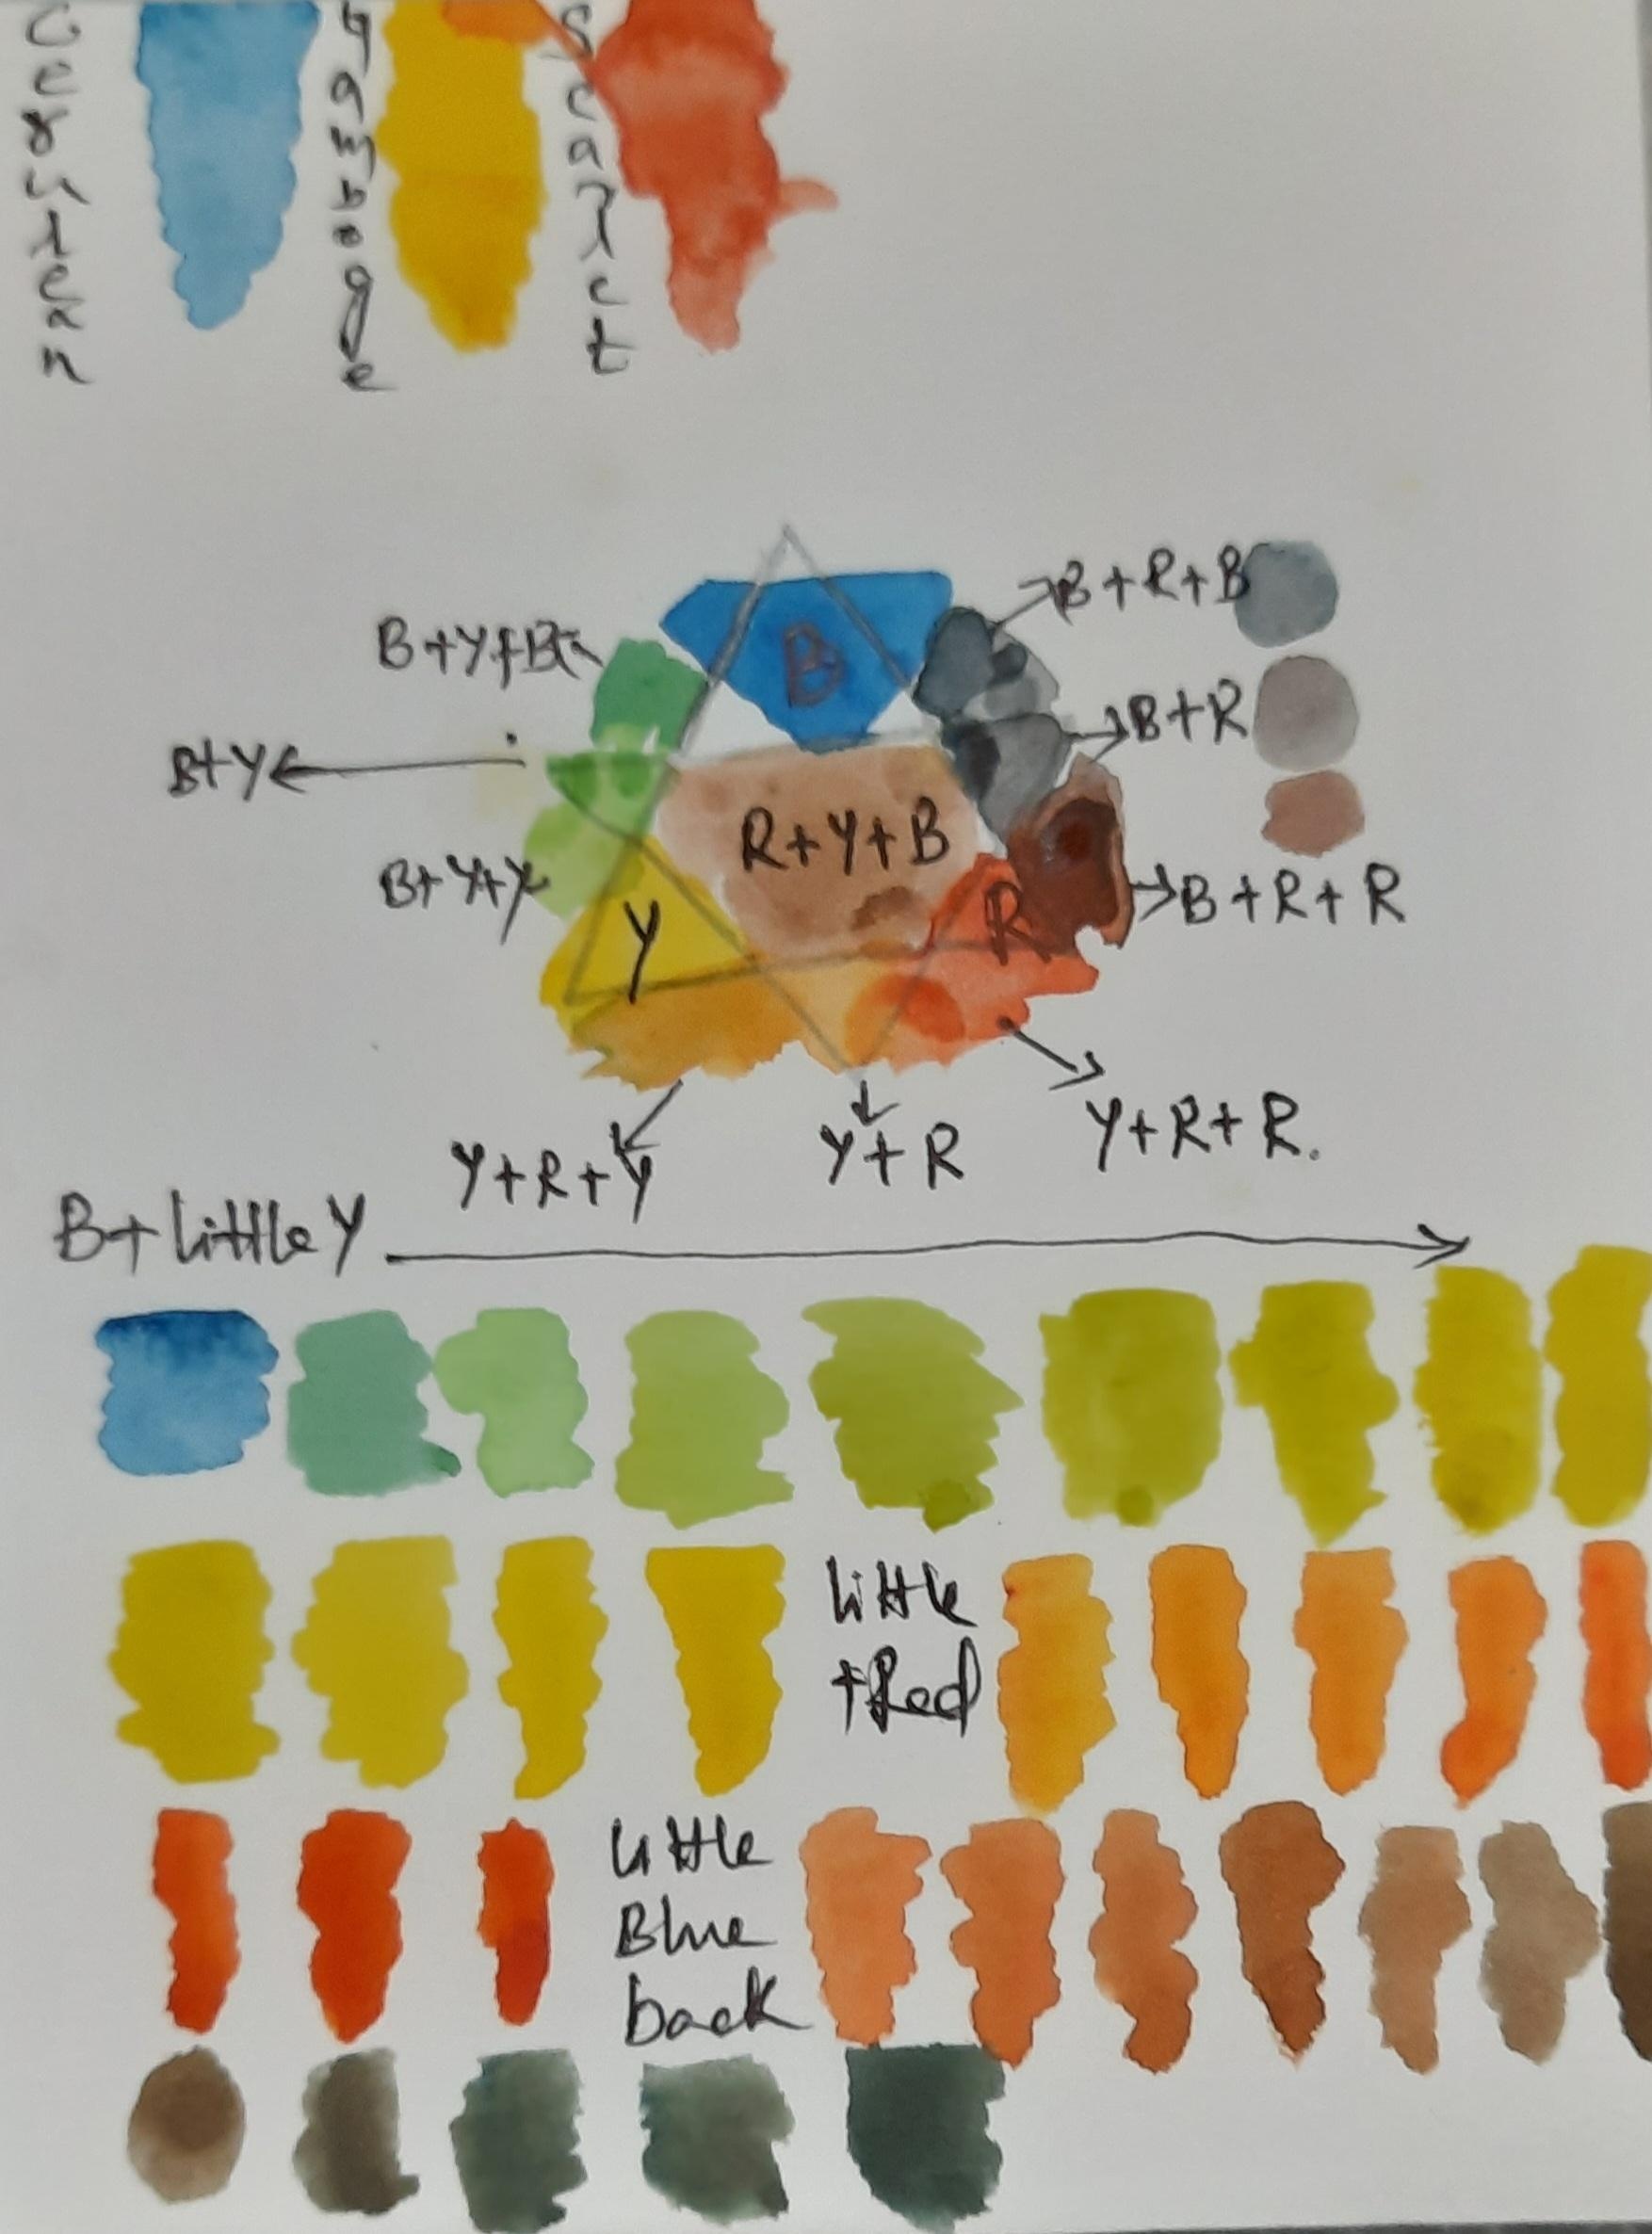 Cerulean
Gamboge
Scarlet
B+R+B
B+Y+B
B
B+R
B+Y
R+Y+B
B+Y+Y
Y
R
B+R+R
Y+R+Y
Y+R
Y+R+R.
B+little Y
little
+Red
little
Blue
back